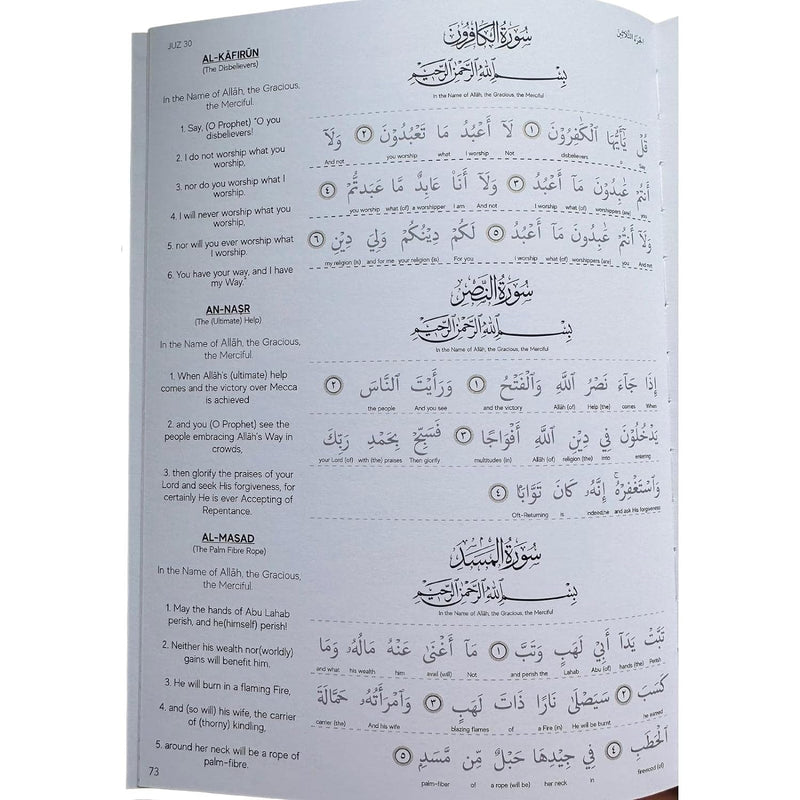 JUZ 30
AL-KĀFIRŪN
(The Disbelievers)
In the Name of Allāh, the Gracious,
the Merciful.
1. Say, (O Prophet) "O you
disbelievers!
2. I do not worship what you
worship,
3. nor do you worship what I
worship.
4. I will never worship what you
worship,
5. nor will you ever worship what
I worship.
6. You have your way, and I have
my Way."
AN-NAṢR
(The (Ultimate) Help)
In the Name of Allāh, the Gracious,
the Merciful.
1. When Allāh's (ultimate) help
comes and the victory over Mecca
is achieved
2. and you (O Prophet) see the
people embracing Allāh's Way in
crowds,
3. then glorify the praises of your
Lord and seek His forgiveness, for
certainly He is ever Accepting of
Repentance.
AL-MASAD
(The Palm Fibre Rope)
In the Name of Allāh, the Gracious,
the Merciful.
1. May the hands of Abu Lahab
perish, and he(himself) perish!
2. Neither his wealth nor(worldly)
gains will benefit him.
3. He will burn in a flaming Fire,
4. and (so will) his wife, the carrier
of (thorny) kindling,
5. around her neck will be a rope of
palm-fibre.
73
الجزء الثلاثين
سُورَةُ الكَافِرُونَ
بِسْمِ ٱللَّهِ ٱلرَّحْمَٰنِ ٱلرَّحِيمِ
In the Name of Allāh, the Gracious, the Merciful
قُلْ يَٰٓأَيُّهَا ٱلْكَٰفِرُونَ ١ لَآ أَعْبُدُ مَا تَعْبُدُونَ ٢ وَلَآ
And not you worship what I worship Not disbelievers Say
أَنتُمْ عَٰبِدُونَ مَآ أَعْبُدُ ٣ وَلَآ أَنَا۠ عَابِدٌ مَّا عَبَدتُّمْ ٤
you worship what (of) a worshipper I am And not I worship what (of) worshippers (are) you
وَلَآ أَنتُمْ عَٰبِدُونَ مَآ أَعْبُدُ ٥ لَكُمْ دِينُكُمْ وَلِيَ دِينِ ٦
my religion (is) and for me your religion (is) For you I worship what (of) worshippers (are) you And not
سُورَةُ النَّصْرِ
بِسْمِ ٱللَّهِ ٱلرَّحْمَٰنِ ٱلرَّحِيمِ
In the Name of Allāh, the Gracious, the Merciful
إِذَا جَآءَ نَصْرُ ٱللَّهِ وَٱلْفَتْحُ ١ وَرَأَيْتَ ٱلنَّاسَ ٢
the people And you see and the victory Allāh (of) Help (the) comes When
يَدْخُلُونَ فِي دِينِ ٱللَّهِ أَفْوَاجًا ٣ فَسَبِّحْ بِحَمْدِ رَبِّكَ
your Lord (of) with (the) praises Then glorify multitudes (in) Allāh (of) religion (the) into entering
وَٱسْتَغْفِرْهُ ۚ إِنَّهُۥ كَانَ تَوَّابًۢا ٤
Oft-Returning is indeed,he and ask His forgiveness
سُورَةُ المَسَدِ
بِسْمِ ٱللَّهِ ٱلرَّحْمَٰنِ ٱلرَّحِيمِ
In the Name of Allāh, the Gracious, the Merciful
تَبَّتْ يَدَآ أَبِي لَهَبٍ وَتَبَّ ١ مَآ أَغْنَىٰ عَنْهُ مَالُهُۥ وَمَا
and what his wealth him avail (will) Not and perish the Lahab Abu (of) hands (the) Perish
كَسَبَ ٢ سَيَصْلَىٰ نَارًا ذَاتَ لَهَبٍ ٣ وَٱمْرَأَتُهُۥ حَمَّالَةَ
carrier (the) And his wife blazing flames of a Fire (in) He will be burnt he earned
ٱلْحَطَبِ ٤ فِي جِيدِهَا حَبْلٌ مِّن مَّسَدٍۭ ٥
palm-fiber of a rope (will be) her neck in firewood (of)